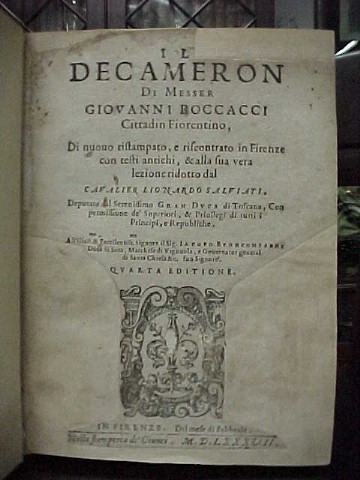 IL
DECAMERON
DI MESSER
GIOVANNI BOCCACCI
Cittadin Fiorentino,
Di nuouo ristampato, e riscontrato in Firenze
con testi antichi, & alla sua vera
lezione ridotto dal
CAVALIER LIONARDO SALVIATI,
Deputato dal Serenissimo GRAN DVCA di Toscana, Con
permissione de' Superiori, & Priuilegi di tutti i
Principi, e Republiche.
Signore il Sig. IACOPO BVONCOMPAGNI
Duca di Sora, Marchese di Vignuola, e Gouernator general
di Santa Chiesa &c. suo Signore.
QVARTA EDITIONE.
IN FIRENZE. Del mese di Febbraio.
Nella stamperia de' Giunti. M. D. LXXXVII.